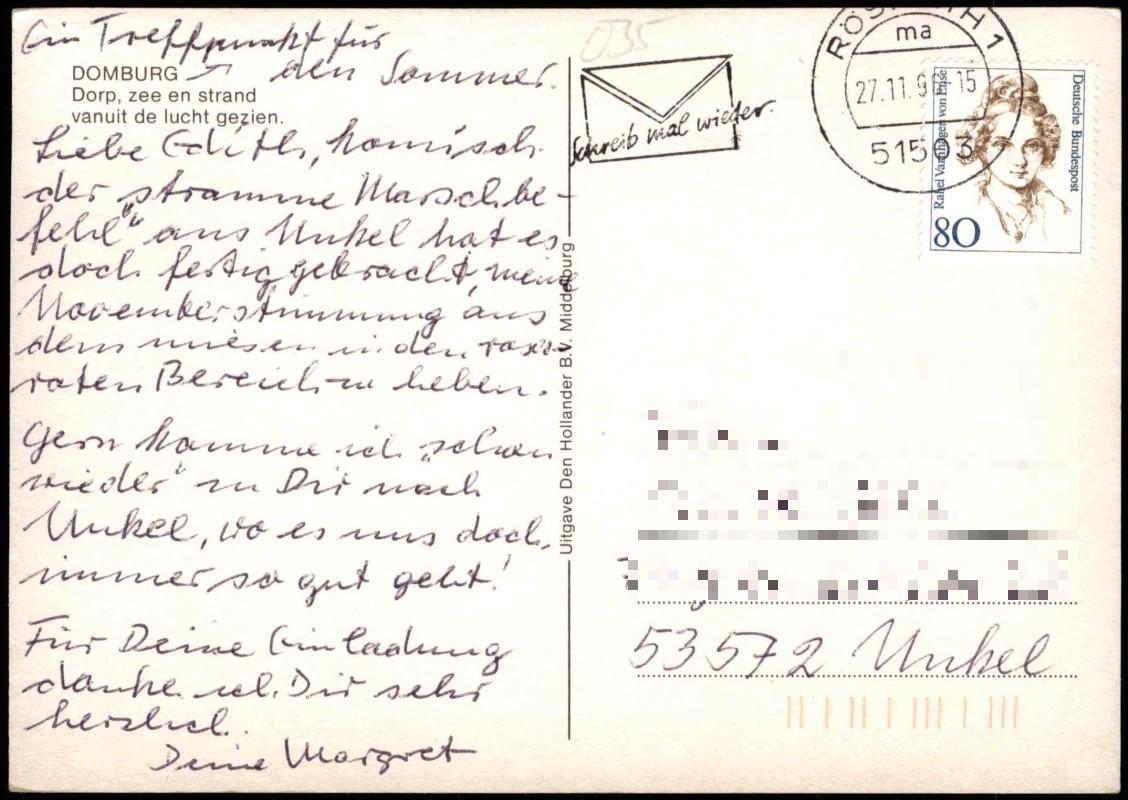 Ein Treffpunkt für
den Sommer.
DOMBURG
Dorp, zee en strand
vanuit de lucht gezien.
Liebe Edith, komisch
der „stramme Marschbe-
fehl" aus Unkel hat es
doch fertig gebracht, meine
Novemberstimmung aus
dem miesen in den rosa-
roten Bereich zu heben.
Gern komme ich „schon
wieder" zu Dir nach
Unkel, wo es uns doch
immer so gut geht!
Für Deine Einladung
danke ich Dir sehr
herzlich.
Deine Margret
Uitgave Den Hollander B.V. Middelburg
035
Schreib mal wieder.
RÖS TH 1
ma
27.11.9 -15
51503
Rahel Varnhagen von Ense
Deutsche Bundespost
80
53572 Unkel